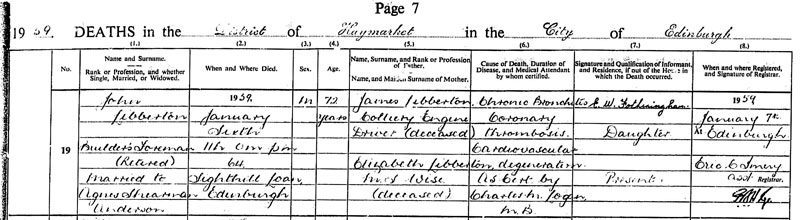 Page 7
1959. DEATHS in the District of Haymarket in the City of Edinburgh
(1.) (2.) (3.) (4.) (5.) (6.) (7.) (8.)
No.
Name and Surname.
Rank or Profession, and whether Single, Married, or Widowed.
When and Where Died.
Sex.
Age.
Name, Surname, and Rank or Profession of Father.
Name, and Maiden Surname of Mother.
Cause of Death, Duration of Disease, and Medical Attendant by whom certified.
Signature and Qualification of Informant, and Residence, if out of the House in which the Death occurred.
When and where Registered, and Signature of Registrar.
19
John
Jebberton
Builder's Foreman
(Retired)
married to
Agnes Shearman
Anderson
1959,
January
Sixth
11h. 0m pm
Sighthill Loan,
Edinburgh
M
72
years
James Jebberton
Colliery Engine
Driver (deceased)
Elizabeth Jebberton
M.S. Wise
(deceased)
Chronic Bronchitis
Coronary
thrombosis.
Cardiovascular
degeneration.
As Cert by
Charles M. Logan
M.B.
E. W. Fotheringham.
Daughter
Present.
1959
January 7th
At Edinburgh
Asst Registrar.